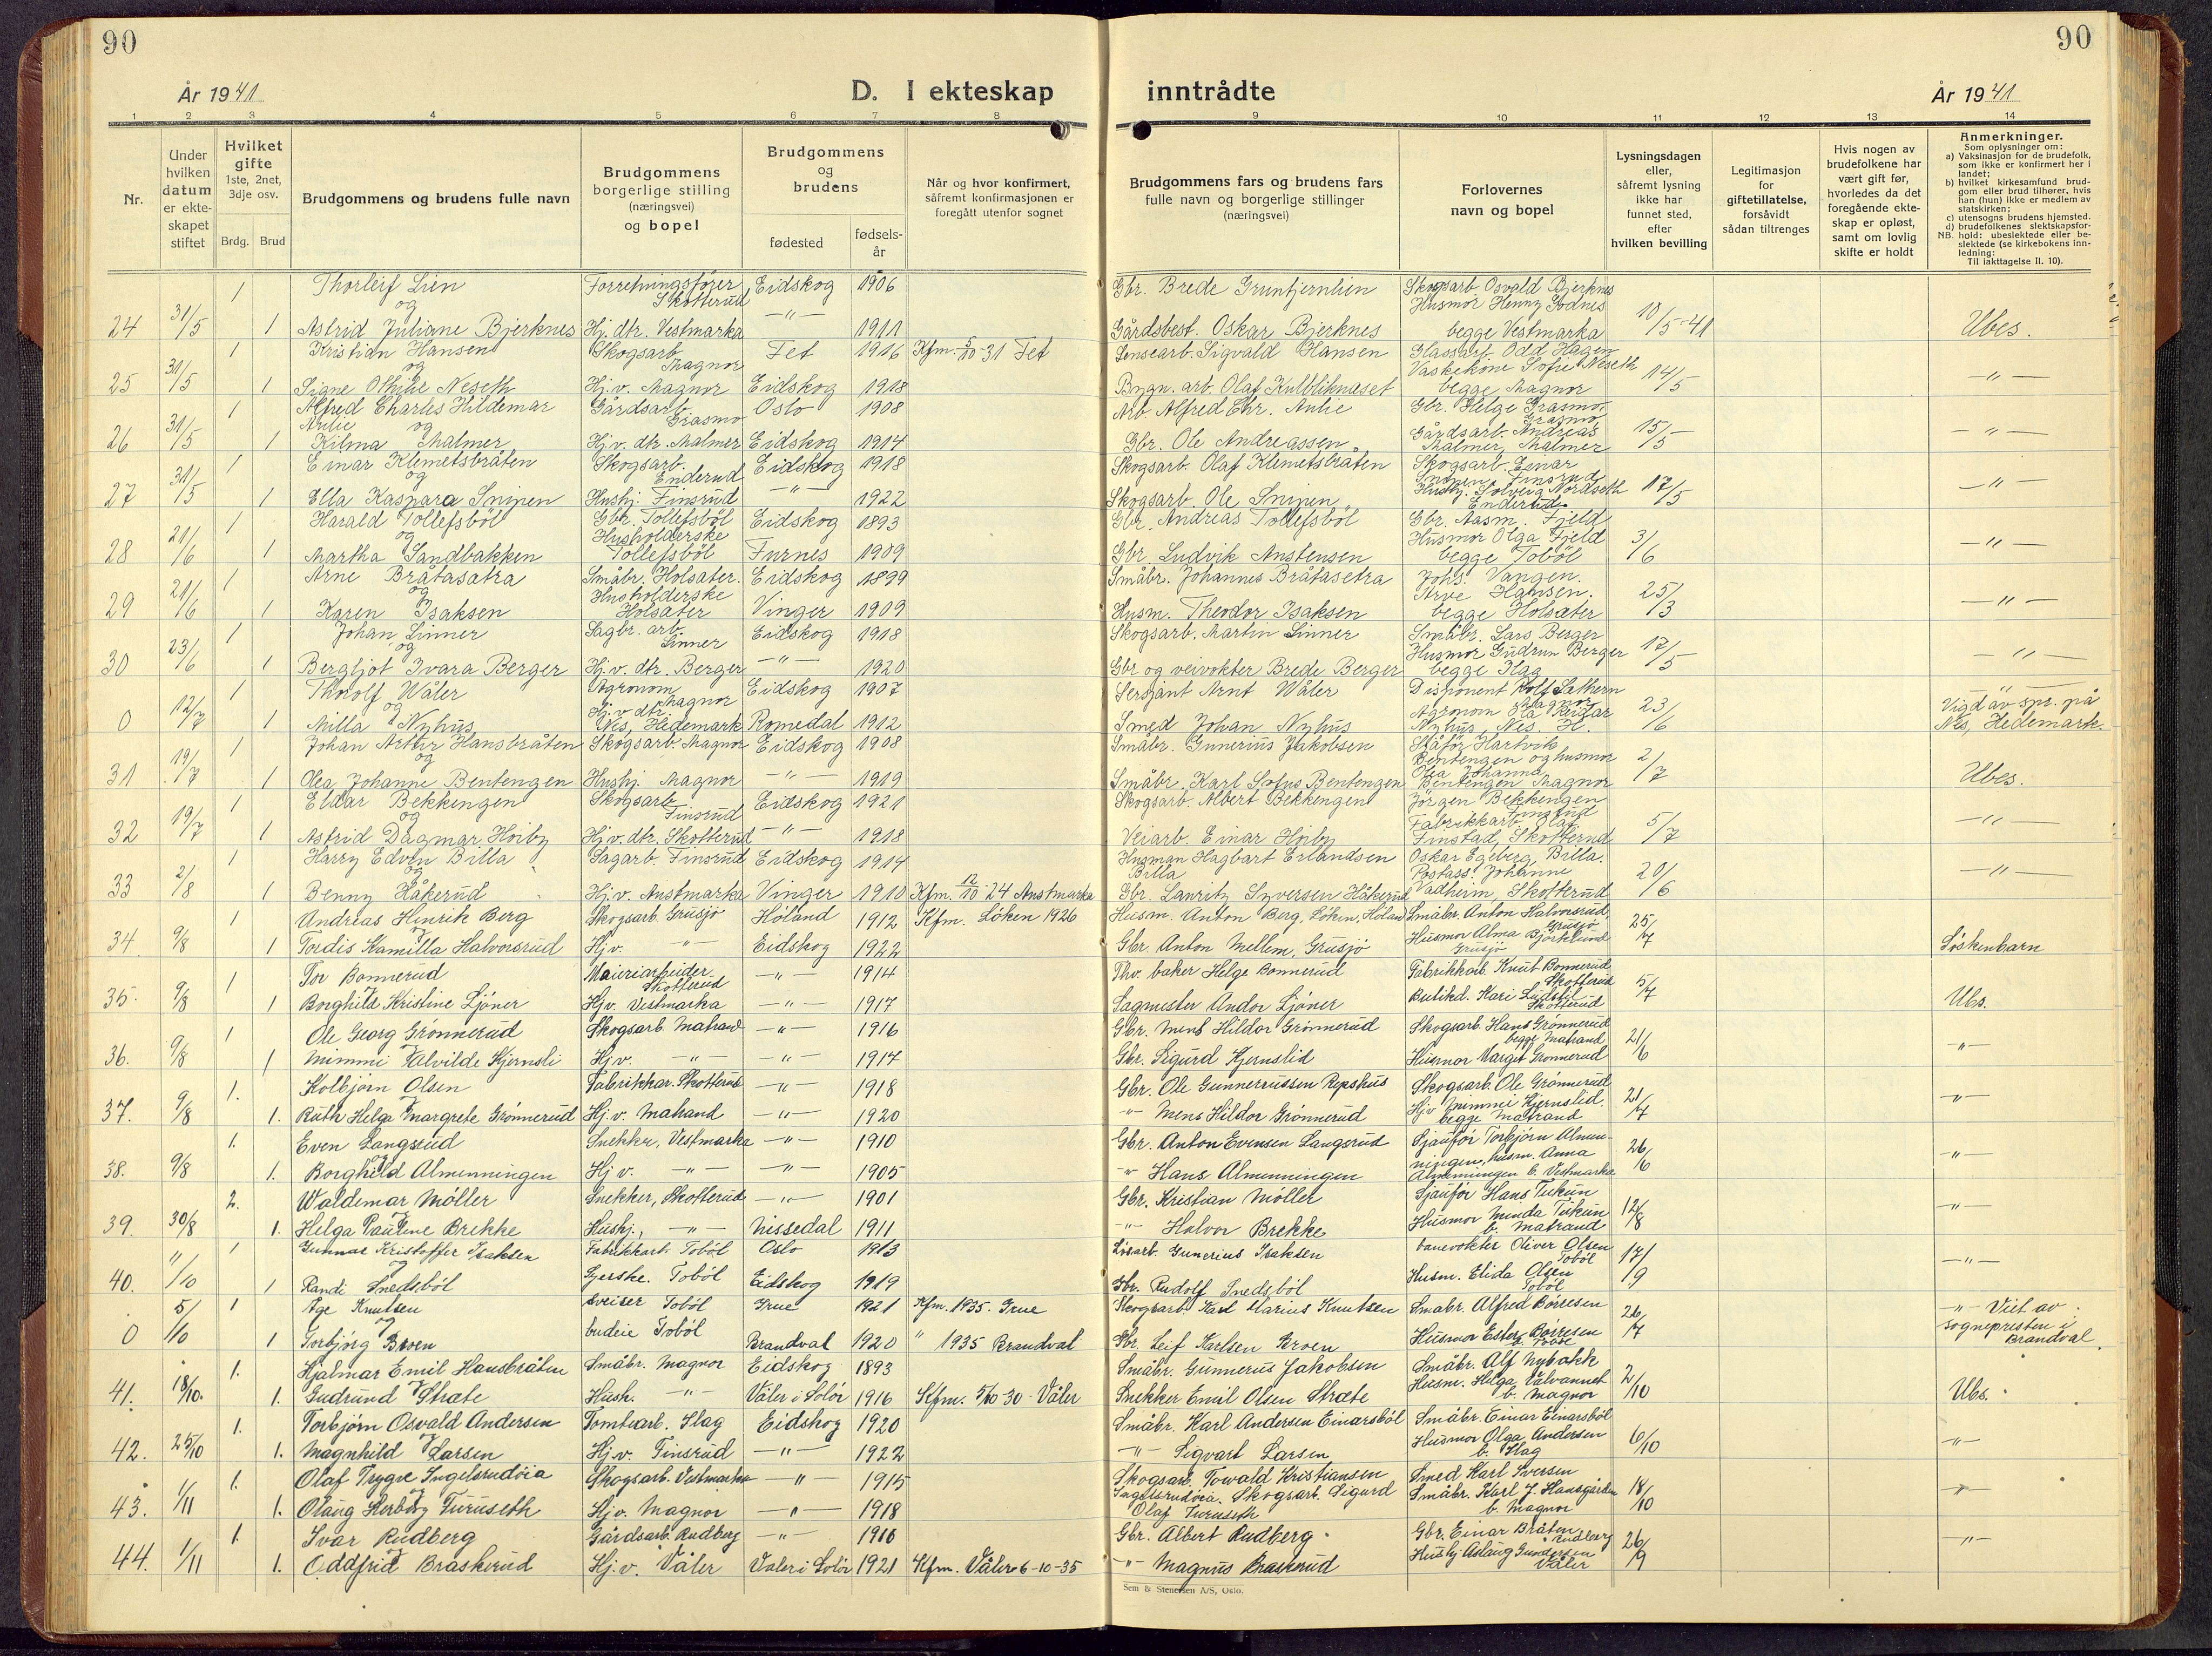 90
90
År 1941
D. I ekteskap inntrådte
År 1941
1 2 3 4 5 6 7 8 9 10 11 12 13 14
Nr.
Under hvilken datum er ekteskapet stiftet
Hvilket gifte 1ste, 2net, 3dje osv.
Brdg. Brud
Brudgommens og brudens fulle navn
Brudgommens borgerlige stilling (næringsvei) og bopel
Brudgommens og brudens
fødested
fødsels-år
Når og hvor konfirmert, såfremt konfirmasjonen er foregått utenfor sognet
Brudgommens fars og brudens fars fulle navn og borgerlige stillinger (næringsvei)
Forlovernes navn og bopel
Lysningsdagen eller, såfremt lysning ikke har funnet sted, efter hvilken bevilling
Legitimasjon for giftetillatelse, forsåvidt sådan tiltrenges
Hvis nogen av brudefolkene har vært gift før, hvorledes da det foregående ekteskap er opløst, samt om lovlig skifte er holdt
Anmerkninger.
Som oplysninger om:
a) Vaksinasjon for de brudefolk, som ikke er konfirmert her i landet;
b) hvilket kirkesamfund brudgom eller brud tilhører, hvis han (hun) ikke er medlem av statskirken;
c) utensogns brudens hjemsted.
d) brudefolkenes slektskapsforhold: ubeslektede eller beslektede (se kirkebokens innledning:
NB.
Til iakttagelse II. 10).
1 Thorleif Lien Forretningsfører Skotterud Eidskog 1906 Gbr. Brede Gruntjernlien Skogsarb Osvald Bjerknes
og Husmor Henny Godnes
24 31/5 1 Astrid Juliane Bjerknes Hj. dtr. Vestmarka -"- 1911 Gårdsbest. Oskar Bjerknes begge Vestmarka 10/5-41 Ubes.
1 Kristian Hansen Skogsarb. Magnor Fet 1916 Kfm. 5/10-31 Fet Lensearb. Sigvald Hansen Glassarb. Odd Hagen
og Vaskekone Sofie Neseth
25 31/5 1 Signe Othilie Neseth Hj.v. Magnor Eidskog 1918 Bygn. arb. Olaf Kulbliknæset begge Magnor 14/5 -"-
1 Alfred Charles Hildemar Aulie Gårdsarb. Grasmo Oslo 1908 Arb. Alfred Chr. Aulie Gbr. Helge Grasmo, Grasmo
og Gårdsarb. Andreas
26 31/5 1 Kilma Malmer Hj.v. dtr. Malmer Eidskog 1914 Gbr. Ole Andreassen Malmer, Malmer 15/5 -"-
1 Einar Klemetsbråten Skogsarb. Enderud Eidskog 1918 Skogsarb. Olaf Klemetsbråten Skogsarb. Einar Snipen, Finsrud
og Hushj. Solveig Nordseth
27 31/5 1 Ella Kaspara Snipen Hushj. Finsrud -"- 1922 Skogsarb. Ole Snipen Enderud 17/5 -"-
1 Harald Tollefsböl Gbr. Tollefsböl Eidskog 1893 Gbr. Andreas Tollefsböl Gbr. Aasm. Fjeld
og Husholderske Husmor Olga Fjeld
28 21/6 1 Martha Sandbakken Tollefsböl Furnes 1909 Gbr. Ludvik Anstensen begge Toböl 3/6 -"-
1 Arne Bråtasætra Småbr. Holsæter. Eidskog 1899 Småbr. Johannes Bråtasetra Johs. Vangen.
og Husholderske Arve Hansen.
29 21/6 1 Karen Isaksen Holsæter Vinger 1909 Husm. Theodor Isaksen begge Holsæter 25/3 -"-
1 Johan Linner Sagbr. arb. Linner Eidskog 1918 Skogsarb. Martin Linner Småbr. Lars Berger
og Husmor Gudrun Berger
30 23/6 1 Bergljot Ivara Berger Hj.v. dtr. Berger -"- 1920 Gbr og veivokter Brede Berger begge Ilag 17/5 -"-
1 Thorolf Wåler Agronom Magnor Eidskog 1907 Sersjant Arnt Wåler Disponent Rolf Sathern Magnor
og Hj.v dtr Agronom
0 12/7 1 Milla Nyhus Nes, Hedemark Romedal 1912 Smed Johan Nyhus Nyhus, Nes. H. 23/6 Vigd av spr. på Nes, Hedemark.
1 Johan Arthur Hansbråten Skogsarb. Magnor Eidskog 1908 Småbr. Gunnerius Jakobsen Hartvik
og Bentengen og husmor
31 19/7 1 Olea Johanne Bentengen Hushj. Magnor -"- 1919 Småbr. Karl Sofus Bentengen Olea Johanna Bentengen Magnor 2/7 Ubes.
1 Eldar Bekkengen Skogsarb. Finsrud Eidskog 1921 Skogsarb. Albert Bekkengen Jørgen Bekkengen Finsrud
og Fabrikkarb. Olaf
32 19/7 1 Astrid Dagmar Hoiby Hj.v. dtr. Skotterud -"- 1918 Veiarb. Einar Høiby Finstad, Skotterud 5/7 -"-
1 Harry Edvin Billa Sagarb. Finsrud Eidskog 1914 Husman Hagbart Erlandsen Billa Oskar Egeberg, Billa.
og Postass. Johanne
33 2/8 1 Benny Håkerud Hj.v. Austmarka Vinger 1910 Kfm. 12/10-24 Austmarka Gbr. Lauritz Syversen Håkerud Vadheim, Skotterud 20/6 -"-
1 Andreas Henrik Berg Skogsarb. Grusjø Høland 1912 Kfm. Löken 1926 Husm. Anton Berg, Löken, Høland Småbr. Anton Halvorsrud, Grusjø
34. 9/8 1 Tordis Kamilla Halvorsrud Hj.v. -"- Eidskog 1922 Gbr Anton Mellem, Grusjø Husmor Alma Björklund Grusjø 25/7 Söskenbarn
1 Tor Bonnerud Meieriarbeider. Skotterud -"- 1914 Thv. baker Helge Bonnerud Fabrikkarb. Knut Bonnerud Skotterud
35. 9/8 1 Borghild Kristine Sjöner Hjv. Vestmarka -"- 1917 Sagmester Andor Sjöner Butikd. Kari Skotterud 5/7 Ubs.
1 Ole Georg Grönnerud Skogsarb. Matrand -"- 1916 Gbr. Mens Hildor Grönnerud Skogsarb. Hans Grönnerud begge Matrand
36. 9/8 1 Mimmi Alvilde Hjernsli Hj.v. -"- -"- 1917 Gbr. Sigurd Hjernslid Husmor Margit Grönnerud 21/6 -"-
1. Kolbjørn Olsen Fabrikkar. Skotterud -"- 1918 Gbr. Ole Gunnerussen Repshus Skogsarb. Ole Grönnerud
37. 9/8 1. Ruth Helga Margrete Grönnerud Hj.v. Matrand -"- 1920 -"- Mens Hildor Grönnerud Hjv Mimmi Hjernslid. begge Matrand 21/7 -"-
1. Even Langsrud Snekker, Vestmarka -"- 1910 Gbr. Anton Evensen Langsrud Sjauför Torbjörn Almen-
38. 9/8 og 1. Borghild Almenningen Hj v. -"- -"- 1905 -"- Hans Almenningen ningen, husm. Anna Almenningen b. Vestmarka 26/6 -"-
2. Waldemar Möller Snekker, Skotterud -"- 1901 Gbr. Kristian Möller Sjauför Hans Tukun
39. 30/8 1. Helga Pauline Brekke Hushj., -"- Nissedal 1911 -"- Halvor Brekke Husmor Minda Tukun b. Matrand 12/8 -"-
1 Gunnar Kristoffer Isaksen Fabrikkarb. Toböl Oslo 1913 Gunerius Isaksen banevokter Oliver Olsen Toböl
40. 11/10 og 1 Randi Snedsböl Gjerske. Toböl Eidskog 1919 Gbr. Rudolf Snedsböl Husm. Elida Olsen Toböl 17/9 -"-
1 Åge Knutsen Sveiser Toböl Grue 1921 Kfm. 1935. Grue Skogsarb. Karl Marius Knutsen Småbr. Alfred Börresen
0 5/10 og 1 Torbjörg Broen budeie Toböl Brandval 1920 " 1935 Brandval Gbr. Leif Karlsen Broen Husmor Ester Börresen b. Toböl 26/7 -"- Viet av sognepresten i Brandval.
1. Hjalmar Emil Hansbråten Småbr. Magnor Eidskog 1893 Småbr. Gunnerus Jakobsen Småbr. Alf Nybakk
41. 18/10. 1. Gudrund Stræte Hush. -"- Våler i Solör 1916 Kfm. 5/10 30 - Våler Snekker Emil Olsen Stræte Husm. Helga Tålvannet b. Magnor 2/10 Ubs.
1. Torbjörn Osvald Andersen Tomtearb. Ilag Eidskog 1920 Småbr. Karl Andersen Einarsböl Småbr. Einar Einarsböl
42. 25/10 1. Magnhild Larsen Hj.v. Finsrud -"- 1922 -"- Sigvart Larsen Husmor Olga Andersen b. Ilag 6/10 -"-
1. Olaf Trygve Ingelsrudöia Skogsarb. Vestmarka -"- 1915 Skogsarb. Towald Kristiansen Ingelsrudöia. Smed Karl Iversen
43. 1/11 1. Olaug Herborg Furuseth Hjv. Magnor -"- 1918 Skogsarb. Sigurd Olaf Furuseth Småbr. Karl J. Hansgården b. Magnor 18/10 -"-
1. Ivar Rudberg Gårdsarb. Rudberg -"- 1916 Gbr. Albert Rudberg. Gbr. Einar Bråten, Rudberg
44. 1/11 og 1. Oddfrid Braskerud Hj.v. Våler Våler i Solör 1921 Kfm. Våler 6-10-35 -"- Magnus Braskerud Hushj Aslaug Gundersen Våler 26/9 -"-
Sem & Stenersen A/S, Oslo.